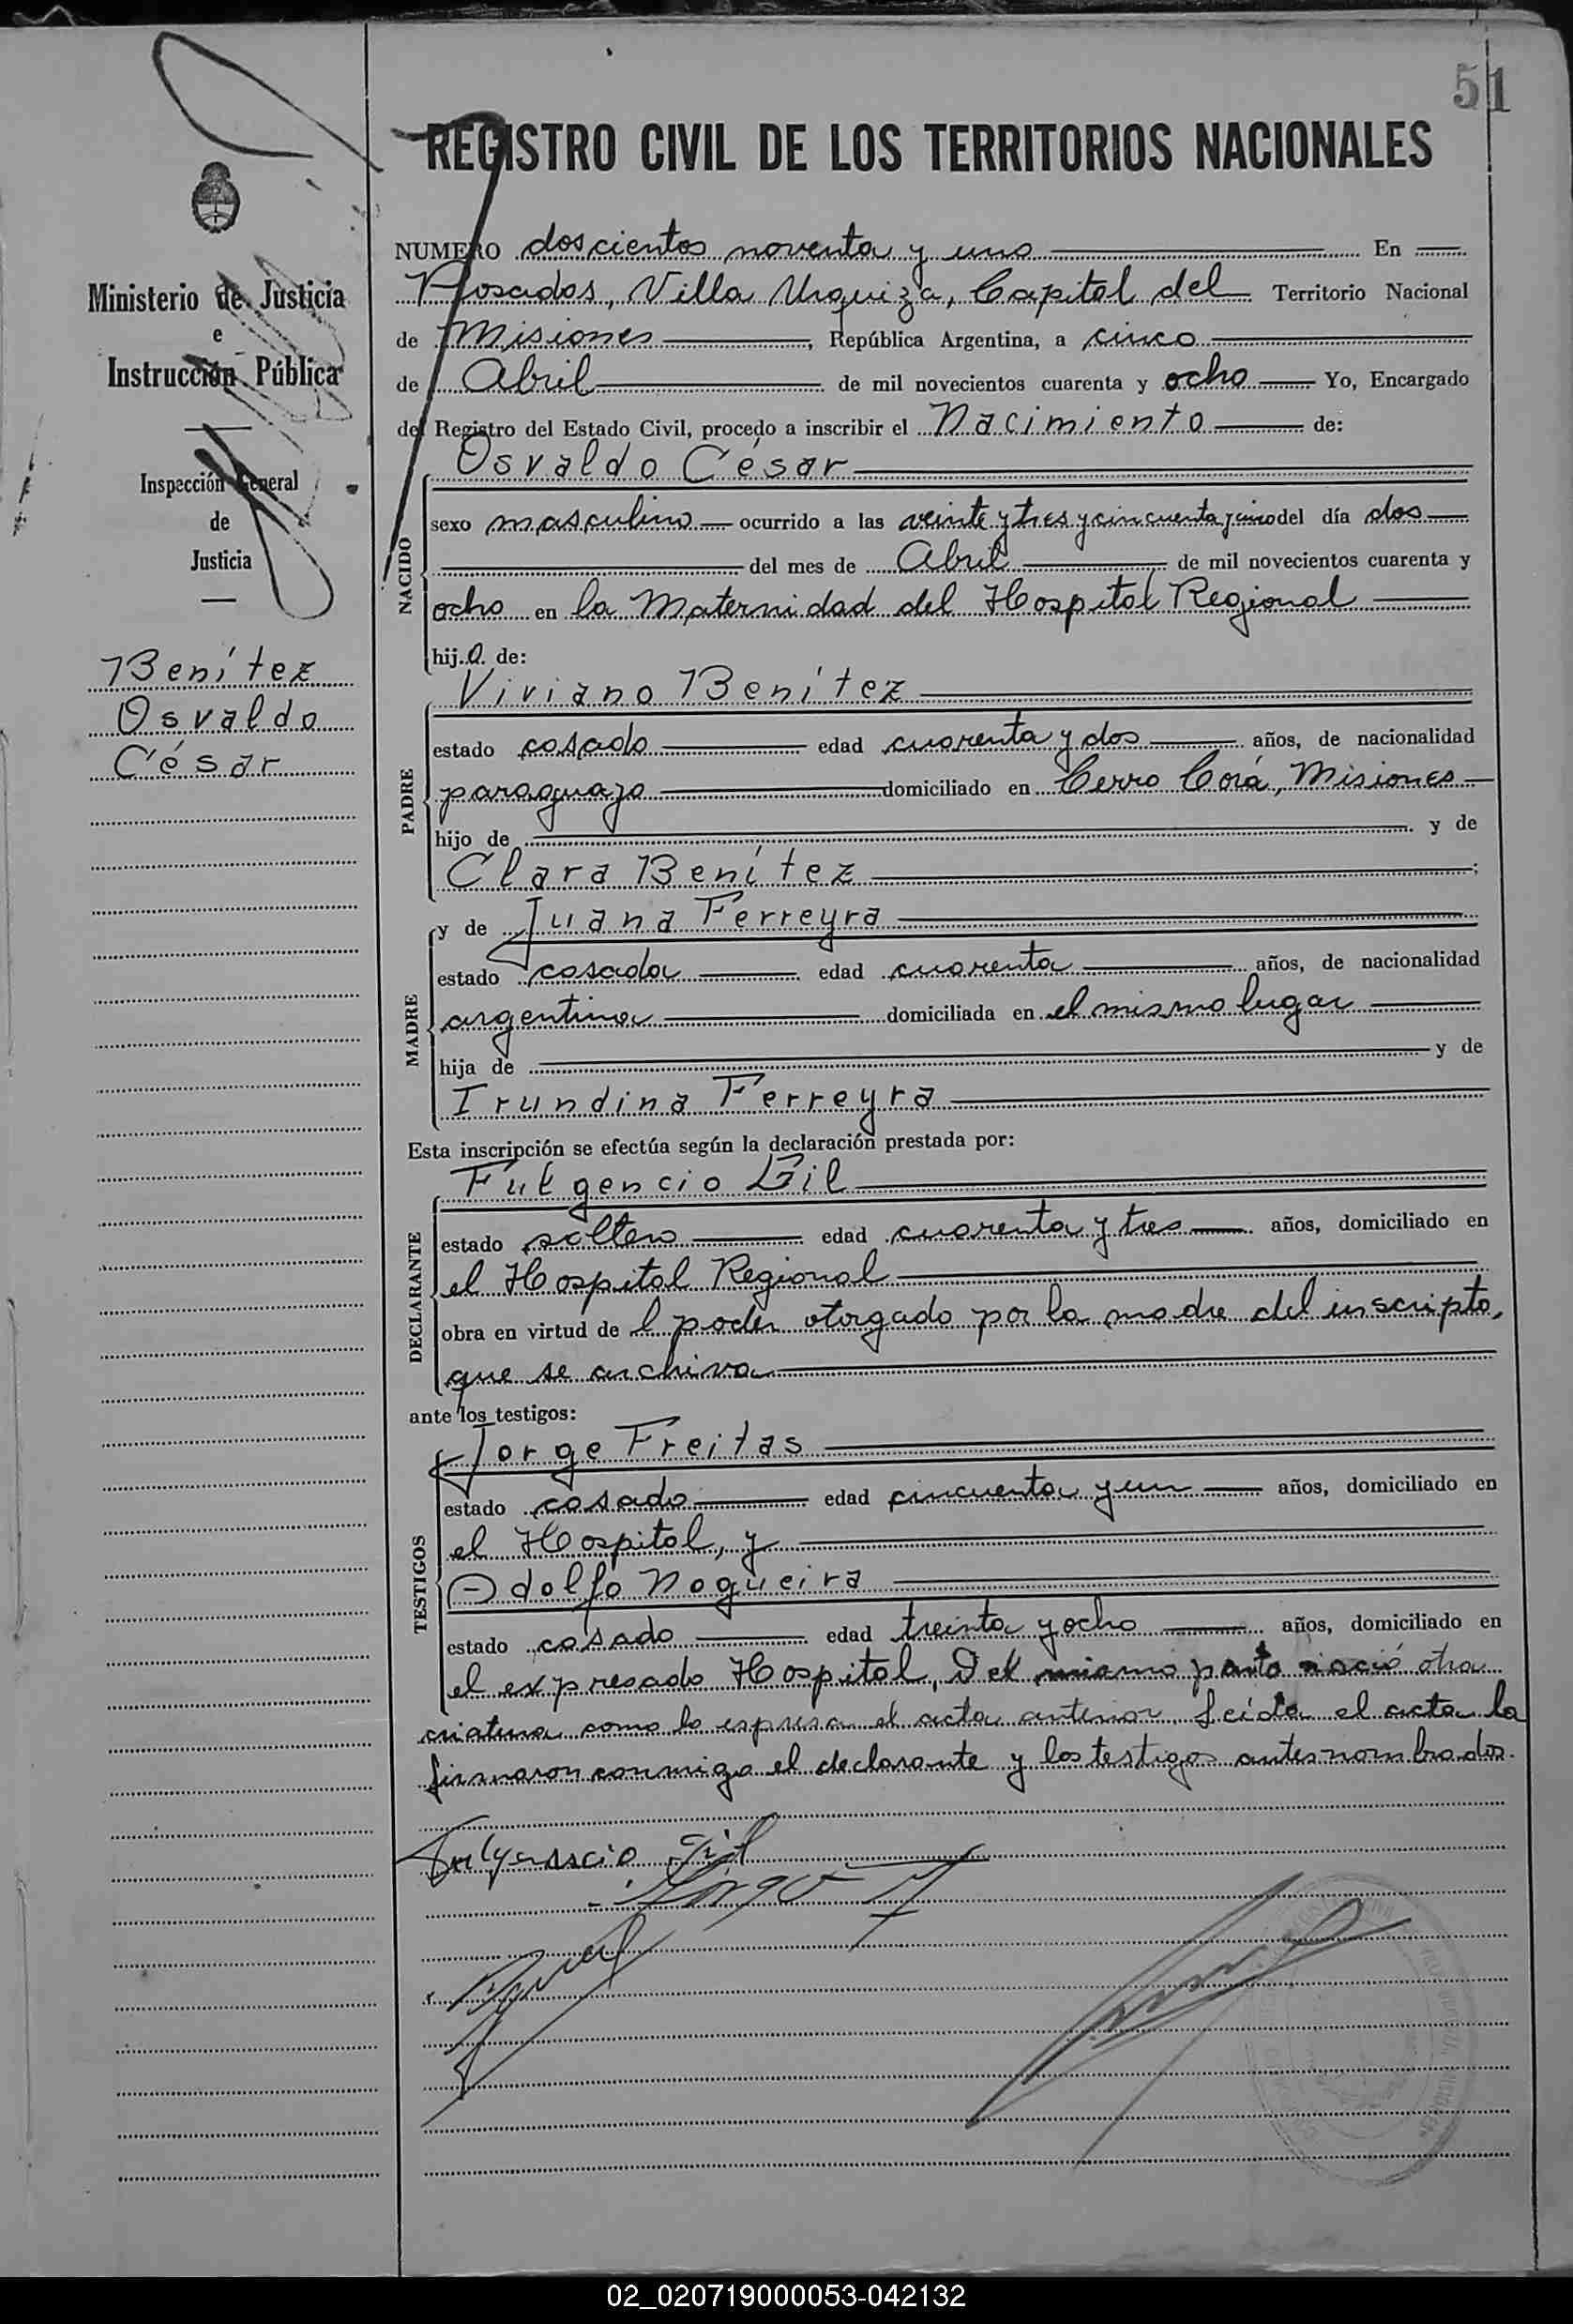 51
REGISTRO CIVIL DE LOS TERRITORIOS NACIONALES
Ministerio de Justicia
e
Instrucción Pública
Inspección General
de
Justicia
Benítez
Osvaldo
César
NUMERO doscientos noventa y uno En
Posadas, Villa Urquiza, Capital del Territorio Nacional
de Misiones, República Argentina, a cinco
de Abril de mil novecientos cuarenta y ocho Yo, Encargado
del Registro del Estado Civil, procedo a inscribir el Nacimiento de:
NACIDO
Osvaldo César
sexo masculino ocurrido a las veinte y tres y cincuenta y cinco del día dos
del mes de Abril de mil novecientos cuarenta y
ocho en la Maternidad del Hospital Regional
hijo de:
PADRE
Viviano Benítez
estado casado edad cuarenta y dos años, de nacionalidad
paraguayo domiciliado en Cerro Corá, Misiones
hijo de y de
Clara Benítez;
MADRE
y de Juana Ferreyra
estado casada edad cuarenta años, de nacionalidad
argentina domiciliada en el mismo lugar
hija de y de
Irundina Ferreyra
Esta inscripción se efectúa según la declaración prestada por:
DECLARANTE
Fulgencio Gil
estado soltero edad cuarenta y tres años, domiciliado en
el Hospital Regional
obra en virtud de l poder otorgado por la madre del inscripto,
que se archiva
ante los testigos:
TESTIGOS
Jorge Freitas
estado casado edad cincuenta y un años, domiciliado en
el Hospital, y
Adolfo Nogueira
estado casado edad treinta y ocho años, domiciliado en
el expresado Hospital, Del mismo parto nació otra
criatura como lo espresa el acta anterior. Leída el acta la
firmaron conmigo el declarante y los testigos antes nombrados.
Fulgensio Gil
Jorge F
02_020719000053-042132